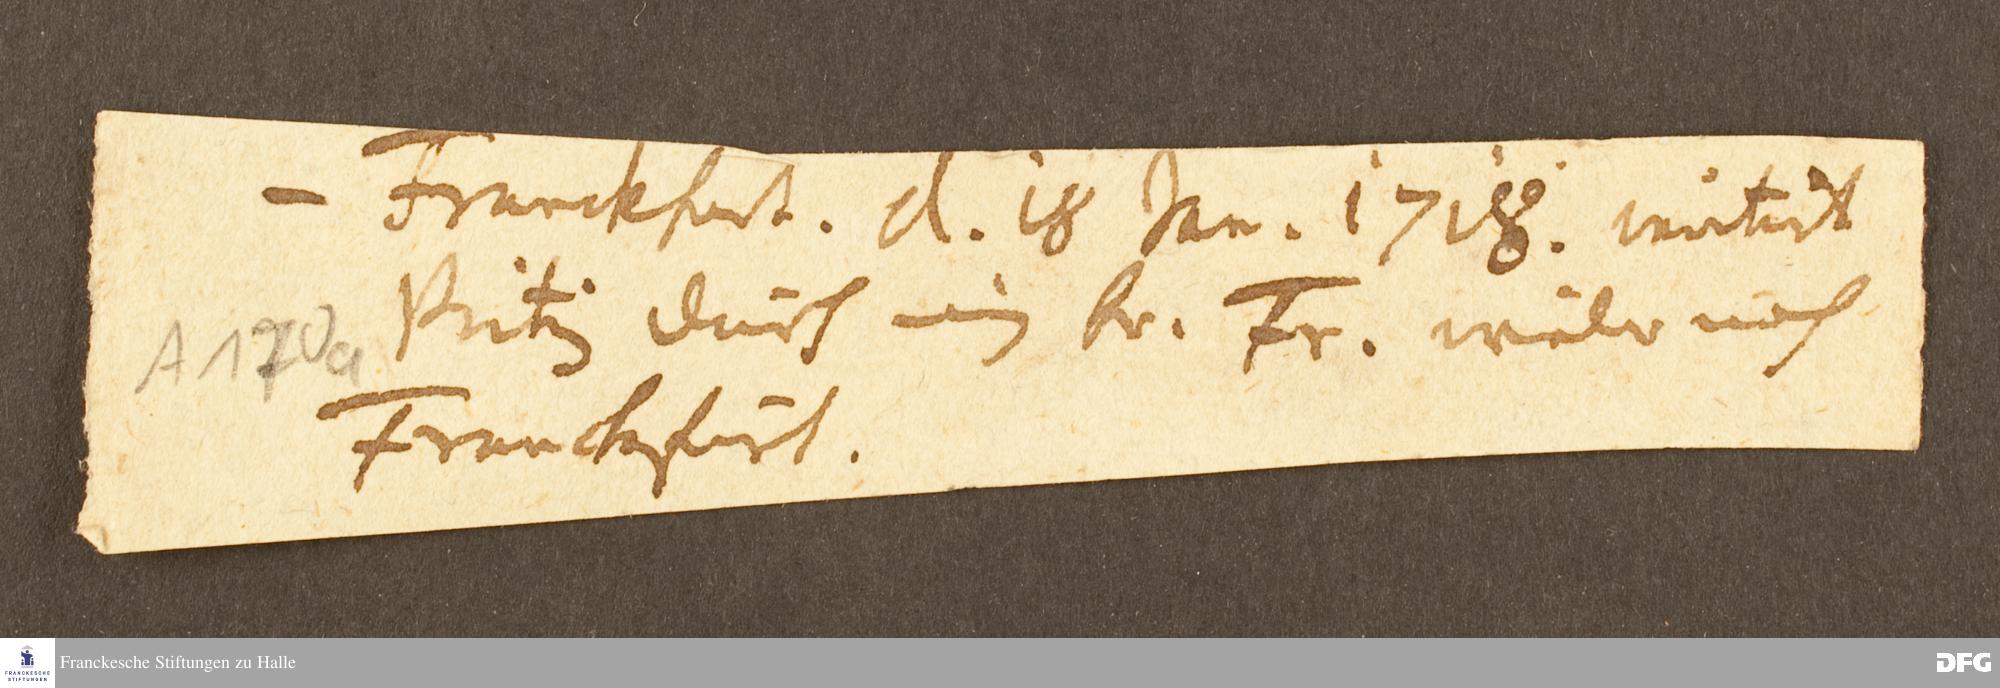 - Franckfurt. d. 18 Jan. 1718. invitirt
Pritz durch ein Br. Fr. wieder nach
A 170a
Franckfurt.
Franckesche Stiftungen zu Halle
FRANCKESCHE
STIFTUNGEN
DFG